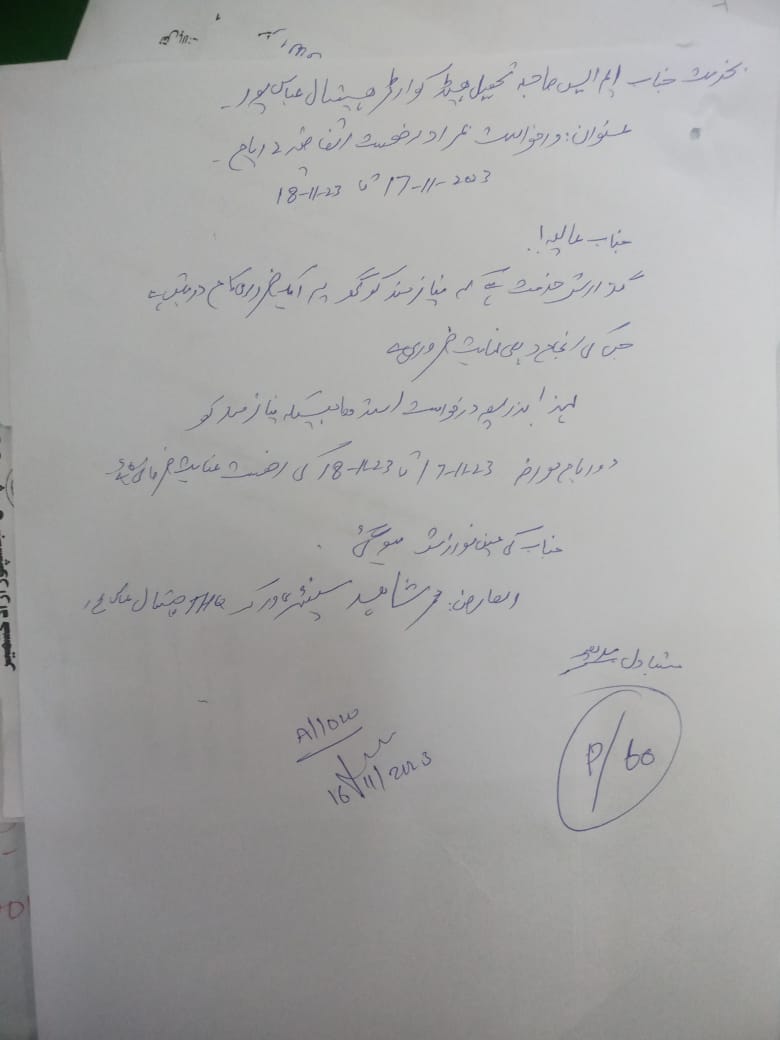 بخدمت جناب ایم ایس صاحبہ تحصیل ہیڈ کوارٹر ہسپتال عباسپور۔
عنوان: درخواست بمراد رخصت اتفاقیہ 2 ایام۔
17-11-2023 تا 18-11-23
جناب عالیہ!!
گزارش خدمت ہے کہ نیازمند کو گھر پہ ایک ضروری کام درپیش ہے
جس کی انجام دہی نہایت ضروری ہے
لہذا بذریعہ درخواست استدعا ہیکہ نیازمند کو
دو ایام مورخہ 17-11-23 تا 18-11-23 کی رخصت عنایت فرمائی جائے
جناب کی عین نوازش ہوگی
العارض: محمد شاہد سینٹری ورکر THQ ہسپتال عباسپور
متبادل
P/60
Allow
16/11/2023